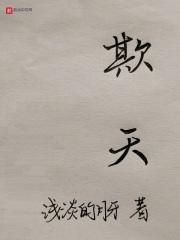 起点中文网
欺
天
浅淡的牙 著